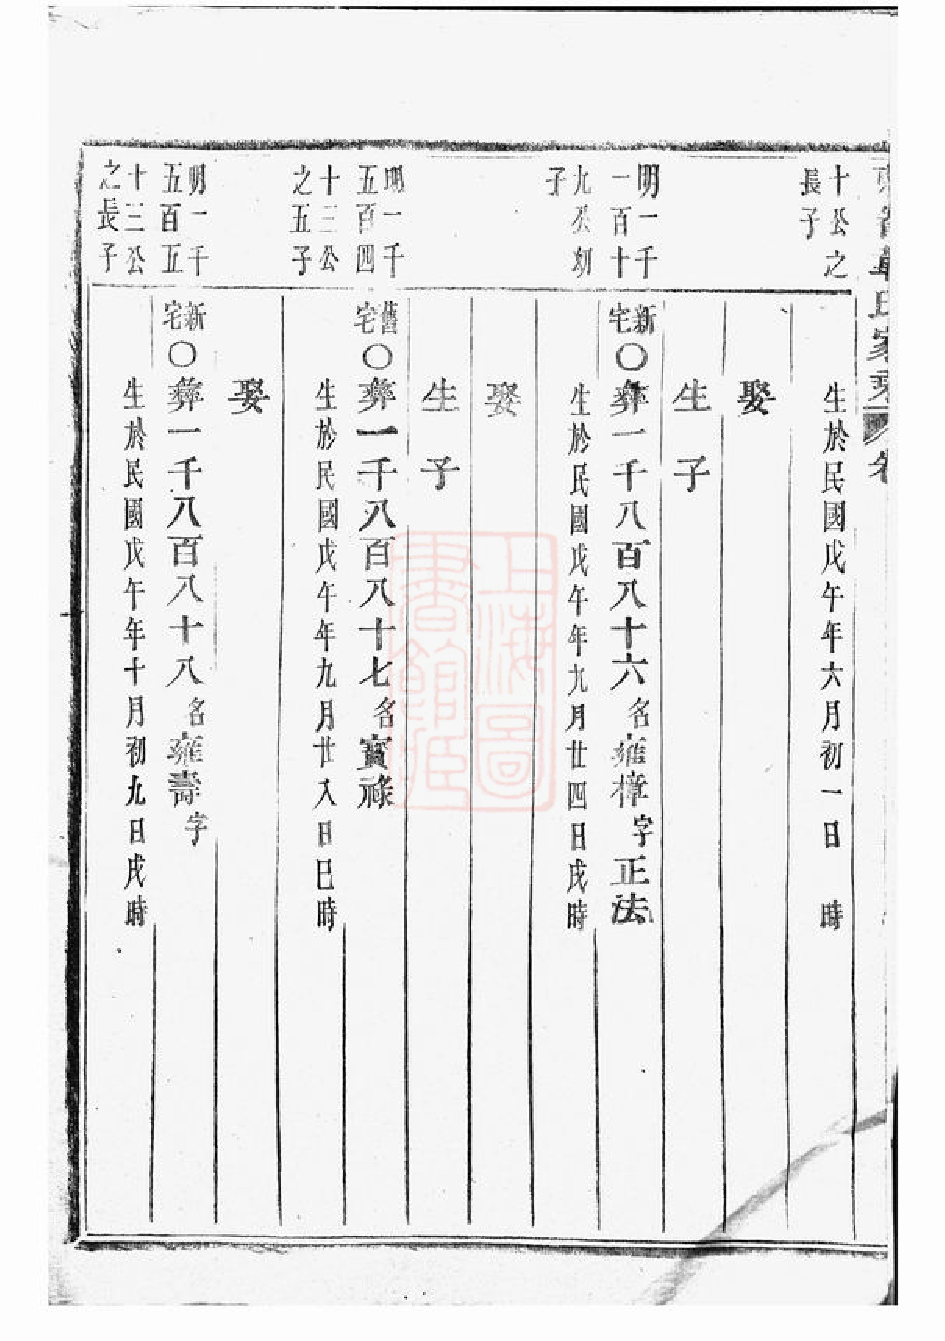 氏家乘
十公之
長子
生於民國戊午年六月初一日　時
娶
生子
明一千
一百十
九公幼
子
新宅〇彝一千八百八十六名雍樟字正法
生於民國戊午年九月廿四日戌時
娶
生子
明一千
五百四
十三公
之五子
舊宅〇彝一千八百八十七名寳祿
生於民國戊午年九月廿八日巳時
娶
明一千
五百五
十三公
之長子
新宅〇彝一千八百八十八名雍壽字
生於民國戊午年十月初九日戌時
上海圖
書館藏